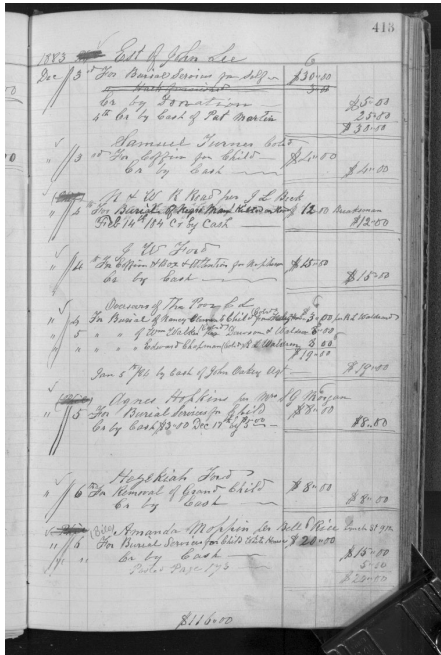 413
1883 Est of John Lee
Dec 3rd For Burial Services for Self $30.00
Cr by Donation $5.00
4th Cr by Cash of Pat Martin 25.00
$30.00
Samuel Turner Cold
" 3rd For Coffin for Child $4.00
Cr by Cash $4.00
N & W R Road per J L Bock
" 4th For Burial of Negro Man Killed on Road $12.00 Brakesman
Feb 14th 184 Cr by Cash $12.00
J W Ford
" 4th For Coffin & Box & Attention for Nephew $15.00
Cr by Cash $15.00
Overseers of The Poor
" 4 For Burial of Nancy & Child
" 5 " " of Wm Walden 8.00
" " " " Edward Chapman 8.00
$19.00
Jan 5th 84 by Cash of John Oakey Agt $19.00
Agnes Hopkins for Mrs Morgan
" 5 For Burial Services for Child $8.00
Cr by Cash $3.00 Dec 17th by 5.00 $8.00
Hezekiah Ford
" 6th For Removal of Grand Child $8.00
Cr by Cash $8.00
Amanda Moppin per Bell Rice
" 6 For Burial Services for Child $20.00
" " Cr by Cash $15.00
Page 173 5.00
$20.00
$116.00